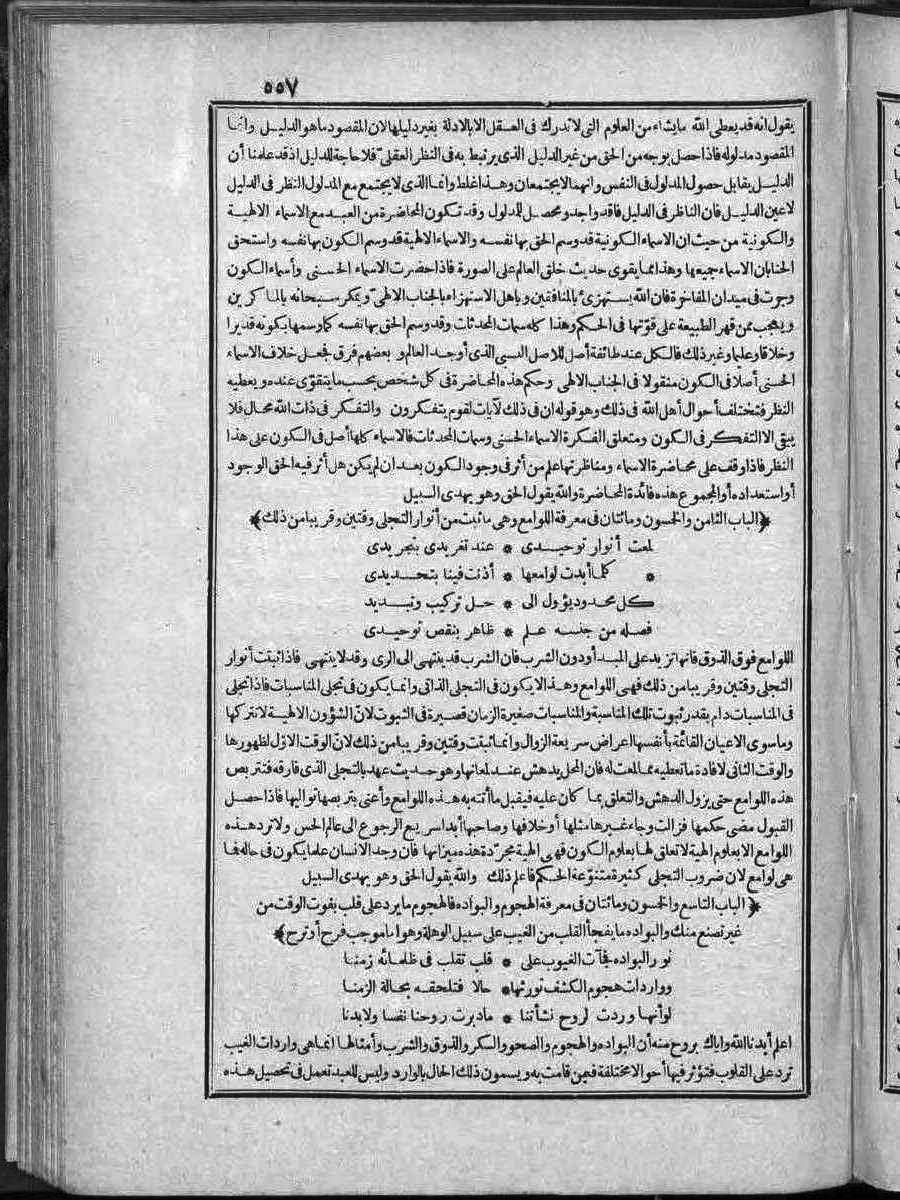 ٥٥٧
يقول انه قد يعطى الله ما يشاء من العلوم التى لا تدرك فى العقل الا بالادلة بغير دليلها لان المقصود ما هو الدليل وانما
المقصود مدلوله فاذا حصل بوجه من الحق من غير الدليل الذى يرتبط به فى النظر العقلى فلا حاجة للدليل اذ قد علمنا أن
الدليل يقابل حصول المدلول فى النفس وانهما لا يجتمعان وهذا غلط وانما الذى لا يجتمع مع المدلول النظر فى الدليل
لا عين الدليل فان الناظر فى الدليل فاقد واجد ومحصل للدلول وقد تكون المحاضرة من العبد مع الاسماء الالهية
والكونية من حيث ان الاسماء الكونية قد وسم الحق بها نفسه والاسماء الالهية قد وسم الكون بها نفسه واستحق
الجنابان الاسماء جميعها وهذا مما يقوى حديث خلق العالم على الصورة فاذا حضرت الاسماء الحسنى وأسماء الكون
وجرت فى ميدان المفاخرة فان الله يستهزئ بالمنافقين وباهل الاستهزاء بالجناب الالهى ويمكر سبحانه بالماكرين
ويعجب ممن قهر الطبيعة على قوّتها فى الحكم وهذا كله سمات المحدثات وقد وسم الحق بها نفسه كما وسمها بكونه قديرا
وخلاقا وعليما وغير ذلك فالكل عند طائفة أصل للاصل النسبى الذى أوجد العالم و بعضهم فرق فجعل خلاف الاسماء
الحسنى أصلا فى الكون منقولا فى الجناب الالهى وحكم هذه المحاضرة فى كل شخص بحسب ما يتقوّى عنده ويعطيه
النظر فتختلف أحوال أهل الله فى ذلك وهو قوله ان فى ذلك لآيات لقوم يتفكرون والتفكر فى ذات الله محال فلا
يبقى الا التفكر فى الكون ومتعلق الفكرة الاسماء الحسنى وسمات المحدثات فالاسماء كلها أصل فى الكون على هذا
النظر فاذا وقف على محاضرة الاسماء ومناظرتها علم من أثر فى وجود الكون بعد ان لم يكن هل أثر فيه الحق الوجود
أو استعداده أو المجموع هذه فائدة المحاضرة والله يقول الحق وهو يهدى السبيل
﴿الباب الثامن والخسون ومائتان فى معرفة اللوامع وهى ما ثبت من أنوار التجلى وقتين وقريبا من ذلك﴾
لمعت أنوار توحيدى * عند تغريدى بتجريدى
* كلما أبدت لوامعها * أذنت فينا بتحديدى
كل محدود يؤول الى * حل تركيب وتبديد
فصله من جنسه علم * ظاهر بنقص توحيدى
اللوامع فوق الذوق فانها تزيد على المبدأ ودون الشرب فان الشرب قد ينتهى الى الرى وقد لا ينتهى فاذا ثبتت أنوار
التجلى وقتين وقريبا من ذلك فهى اللوامع وهذا لا يكون فى التجلى الذاتى وانما يكون فى تجلى المناسبات فاذا تجلى
فى المناسبات دام بقدر ثبوت تلك المناسبة والمناسبات صغيرة الزمان قصيرة فى الثبوت لانّ الشؤون الالهية لا تتركها
وما سوى الاعيان القائمة بأنفسها اعراض سريعة الزوال وانما ثبتت وقتين وقريبا من ذلك لانّ الوقت الاوّل لظهورها
والوقت الثانى لافادة ما تعطيه مما لمعت له فان المحل يدهش عند لمعانها وهو حديث عهد بالتجلى الذى فارقه فتتربص
هذه اللوامع حتى يزول الدهش والتعلق بما كان عليه فيقبل ما أتته به هذه اللوامع وأعنى بتربصها تواليها فاذا حصل
القبول مضى حكمها فزالت وجاء غيرها مثلها أو خلافها وصاحبها أبدا سريع الرجوع الى عالم الحس ولا ترد هذه
اللوامع الا بعلوم الهية لا تعلق لها بعلوم الكون فهى الهية مجرّدة هذه ميزانها فان وجد الانسان علما يكون فى حاله فما
هى لوامع لان ضروب التجلى كثيرة متنوّعة الحكم فاعلم ذلك والله يقول الحق وهو يهدى السبيل
﴿الباب التاسع والخسون ومائتان فى معرفة الهجوم والبواده فالهجوم ما يرد على قلب بفوت الوقت من
غير تصنع منك والبواده ما يفجأ القلب من الغيب على سبيل الوهلة وهو اما موجب فرح أو ترح﴾
نور البواده فجآت الغيوب على * قلب تقلب فى ظلمائه زمنا
وواردات هجوم الكشف نورثها * حالا فتلحقه بحالة الزمنا
لو أنها وردت لروح نشأتنا * مادبرت روحنا نفسا ولا بدنا
اعلم أيدنا الله واياك بروح منه أن البواده والهجوم والصحو والسكر والذوق والشرب وأمثالها انما هى واردات الغيب
ترد على القلوب فتؤثر فيها أحوالا مختلفة فيمن قامت به ويسمون ذلك الحال بالوارد وليس للعبد تعمل فى تحصيل هذه